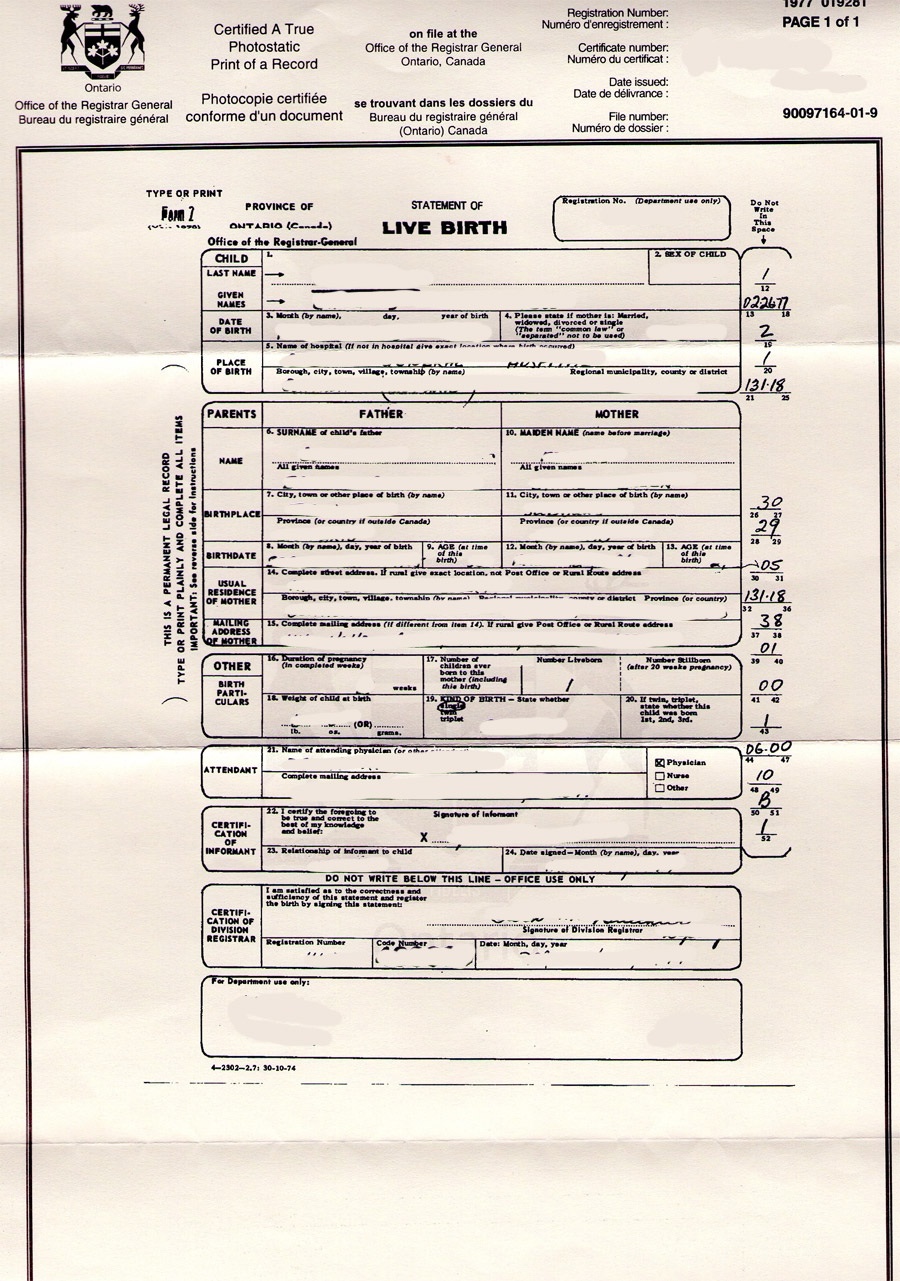 1977 019281
Registration Number:
Numéro d'enregistrement :
PAGE 1 of 1
Certificate number:
Numéro du certificat :
Date issued:
Date de délivrance :
File number:
Numéro de dossier :
90097164-01-9
Ontario
Office of the Registrar General
Bureau du registraire général
Certified A True
Photostatic
Print of a Record
Photocopie certifiée
conforme d'un document
on file at the
Office of the Registrar General
Ontario, Canada
se trouvant dans les dossiers du
Bureau du registraire général
(Ontario) Canada
TYPE OR PRINT
Form 2
PROVINCE OF
ONTARIO (Canada)
Office of the Registrar-General
STATEMENT OF
LIVE BIRTH
Registration No. (Department use only)
Do Not
Write
In
This
Space
CHILD
1.
2. SEX OF CHILD
LAST NAME
GIVEN
NAMES
1
12
022677
13 18
DATE
OF BIRTH
3. Month (by name), day, year of birth
4. Please state if mother is: Married,
widowed, divorced or single
(The term "common law" or
"separated" not to be used)
2
19
PLACE
OF BIRTH
5. Name of hospital (If not in hospital give exact location where birth occurred)
Borough, city, town, village, township (by name)
Regional municipality, county or district
1
20
131.18
21 25
THIS IS A PERMANENT LEGAL RECORD
TYPE OR PRINT PLAINLY AND COMPLETE ALL ITEMS
IMPORTANT: See reverse side for instructions
PARENTS
FATHER
MOTHER
NAME
6. SURNAME of child's father
All given names
10. MAIDEN NAME (name before marriage)
All given names
BIRTHPLACE
7. City, town or other place of birth (by name)
Province (or country if outside Canada)
11. City, town or other place of birth (by name)
Province (or country if outside Canada)
30
26 27
29
28 29
BIRTHDATE
8. Month (by name), day, year of birth
9. AGE (at time
of this
birth)
12. Month (by name), day, year of birth
13. AGE (at time
of this
birth)
05
30 31
USUAL
RESIDENCE
OF MOTHER
14. Complete street address. If rural give exact location, not Post Office or Rural Route address
Borough, city, town, village, township (by name)
Regional municipality, county or district
Province (or country)
131.18
32 36
MAILING
ADDRESS
OF MOTHER
15. Complete mailing address (if different from item 14). If rural give Post Office or Rural Route address
38
37 38
OTHER
BIRTH
PARTI-
CULARS
16. Duration of pregnancy
(in completed weeks)
weeks
17. Number of
children ever
born to this
mother (including
this birth)
Number Liveborn
1
Number Stillborn
(after 20 weeks pregnancy)
01
39 40
00
41 42
18. Weight of child at birth
(OR)
lb. oz. grams.
19. KIND OF BIRTH — State whether
single
twin
triplet
20. If twin, triplet,
state whether this
child was born
1st, 2nd, 3rd.
1
43
ATTENDANT
21. Name of attending physician
Complete mailing address
Physician
Nurse
Other
06.00
44 47
10
48 49
B
50 51
CERTIFI-
CATION
OF
INFORMANT
22. I certify the foregoing to
be true and correct to the
best of my knowledge
and belief:
Signature of Informant
X
23. Relationship of informant to child
24. Date signed—Month (by name), day, year
1
52
DO NOT WRITE BELOW THIS LINE – OFFICE USE ONLY
CERTIFI-
CATION OF
DIVISION
REGISTRAR
I am satisfied as to the correctness and
sufficiency of this statement and register
the birth by signing this statement:
Signature of Division Registrar
Registration Number
Code Number
Date: Month, day, year
For Department use only:
4—2302—2.7: 30-10-74